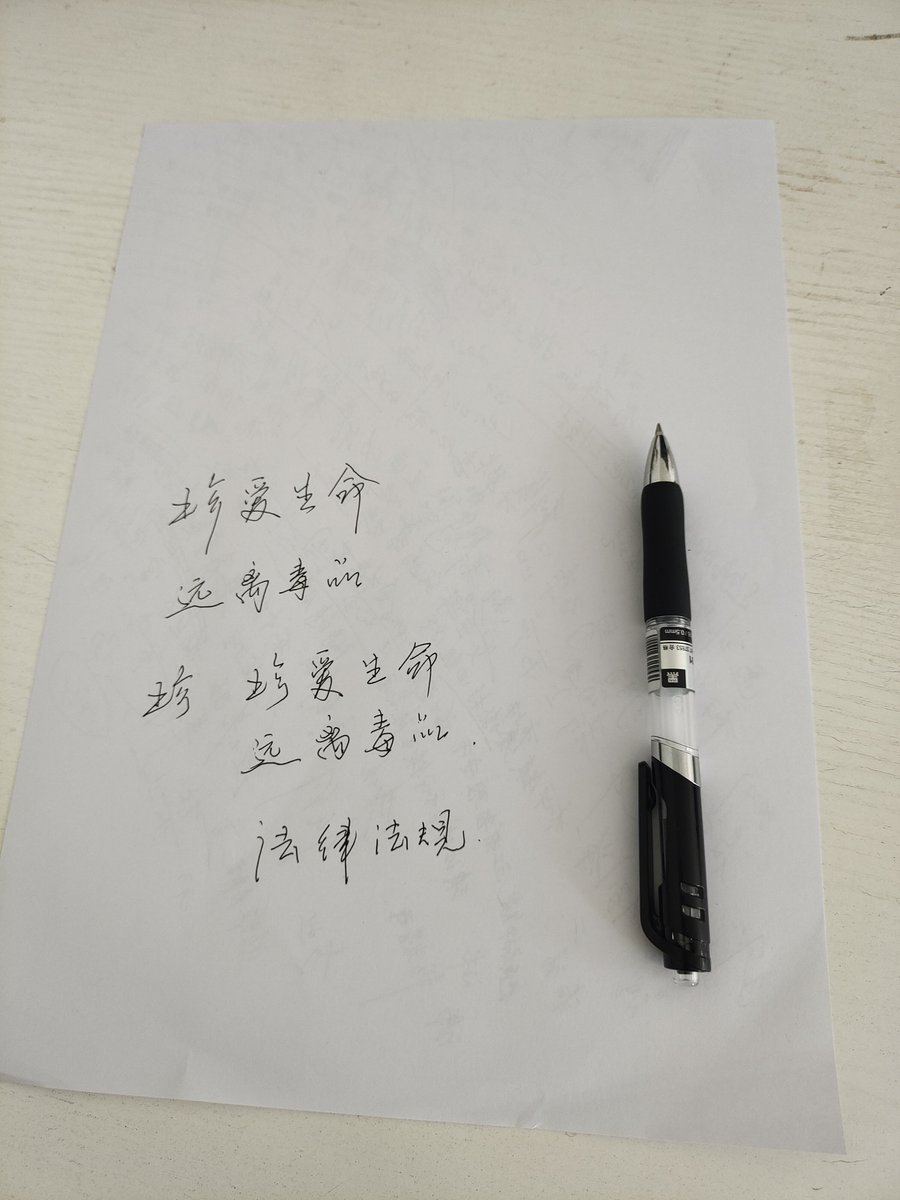 珍爱生命
远离毒品
珍 珍爱生命
远离毒品.
法律法规.
0.5mm